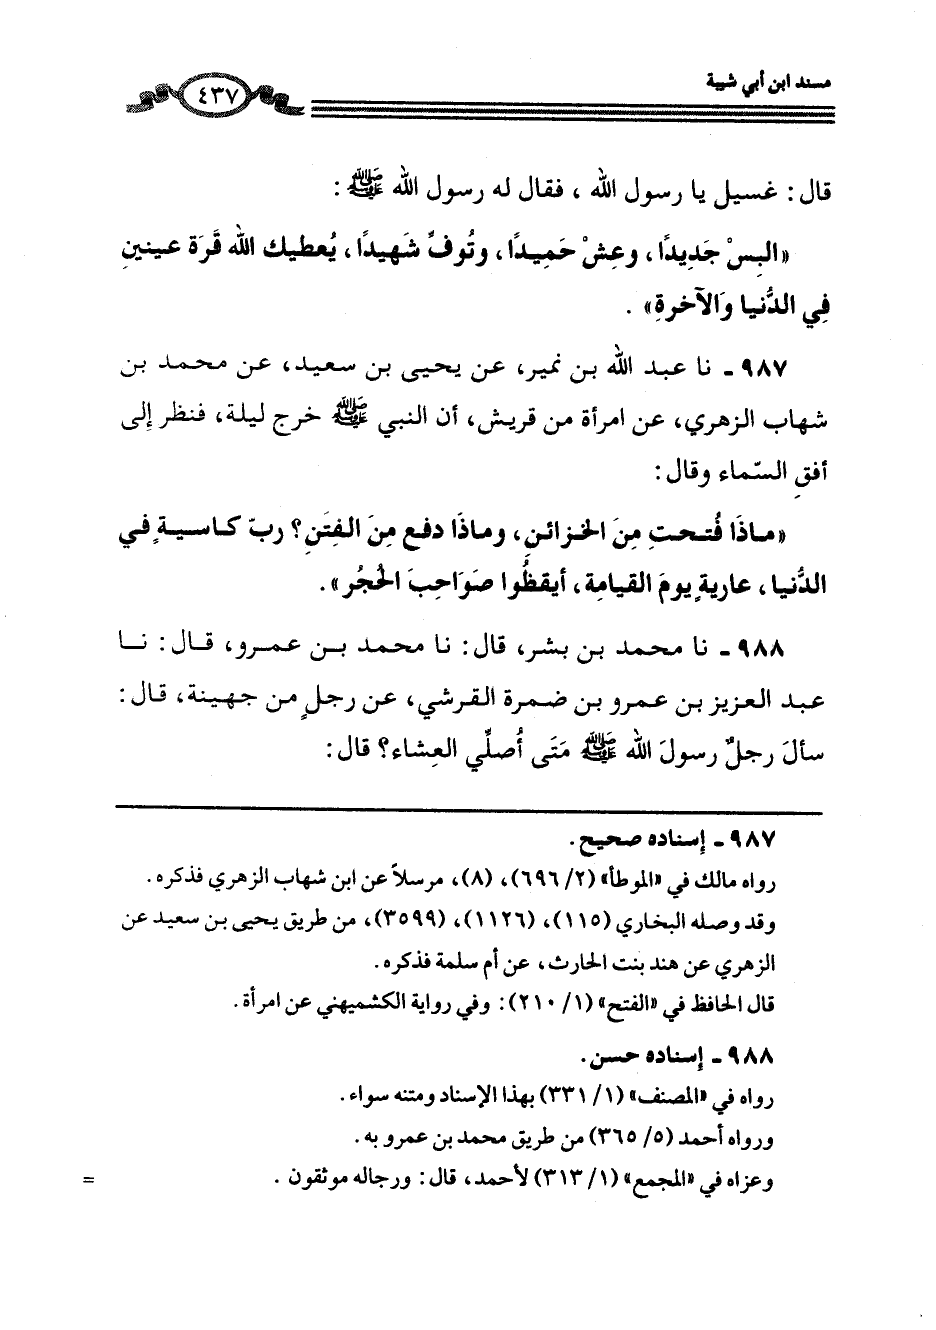 مسند ابن أبي شيبة
٤٣٧
قال: غسيل يا رسول الله ، فقال له رسول الله ﷺ :
«البِسْ جَدِيدًا ، وعِشْ حَمِيدًا ، وتُوفِّ شَهِيدًا ، يُعطيك الله قَرَة عينينِ
فِي الدُّنيا وَالآخرةِ» .
٩٨٧ ـ نا عبد الله بن نمير، عن يحيى بن سعيد، عن محمد بن
شهاب الزهري، عن امرأة من قريش، أن النبي ﷺ خرج ليلة، فنظر إلى
أفقِ السّماء وقال :
«ماذَا فُتحتِ مِنَ الخزائنِ، وماذَا دفع مِنَ الفِتَنِ؟ ربّ كاسيةٍ في
الدُّنيا ، عاريةٍ يومَ القيامةِ، أيقظُوا صَوَاحِبَ الحُجُر» .
٩٨٨ ـ نا محمد بن بشر، قال: نا محمد بن عمرو، قال: نا
عبد العزيز بن عمرو بن ضمرة القرشي، عن رجلٍ من جهينة، قال :
سألَ رجلٌ رسولَ الله ﷺ مَتَى أُصلِّي العِشاء؟ قال :
٩٨٧ ـ إسناده صحيح .
رواه مالك في «الموطأ» (٢/ ٦٩٦)، (٨)، مرسلاً عن ابن شهاب الزهري فذكره .
وقد وصله البخاري (١١٥)، (١١٢٦)، (٣٥٩٩)، من طريق يحيى بن سعيد عن
الزهري عن هند بنت الحارث، عن أم سلمة فذكره .
قال الحافظ في «الفتح» (١/ ٢١٠): وفي رواية الكشميهني عن امرأة .
٩٨٨ ـ إسناده حسن .
رواه في «المصنف» (١/ ٣٣١) بهذا الإسناد ومتنه سواء .
ورواه أحمد (٥/ ٣٦٥) من طريق محمد بن عمرو به .
وعزاه في «المجمع» (١/ ٣١٣) لأحمد، قال: ورجاله موثقون . =